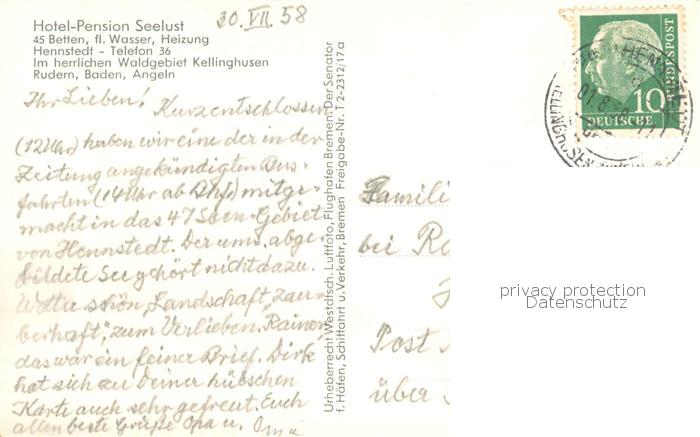 30. VII. 58
Hotel-Pension Seelust
45 Betten, fl. Wasser, Heizung
Hennstedt - Telefon 36
Im herrlichen Waldgebiet Kellinghusen
Rudern, Baden, Angeln
Ihr Lieben! Kurzentschlossen
(12 Uhr) haben wir eine der in der
Zeitung angekündigten Aus-
fahrten (14 Uhr ab Bhf.) mitge-
macht in das 47 Seen-Gebiet
von Hennstedt. Der uns abge-
bildete See gehört nicht dazu.
Wetter schön, Landschaft "zau-
berhaft", zum Verlieben. Rainer,
das war ein feiner Brief. Dirk
hat sich zu Deiner hübschen
Karte auch sehr gefreut. Euch
allen beste Grüße Opa u. Oma
Urheberrecht Westdtsch. Luftfoto, Flughafen Bremen. Der Senator
f. Häfen, Schiffahrt u. Verkehr, Bremen Freigabe-Nr. T 2-2312/17 a
DEUTSCHE
BUNDESPOST
10
Famili
bei Ro
Post
über
privacy protection
Datenschutz